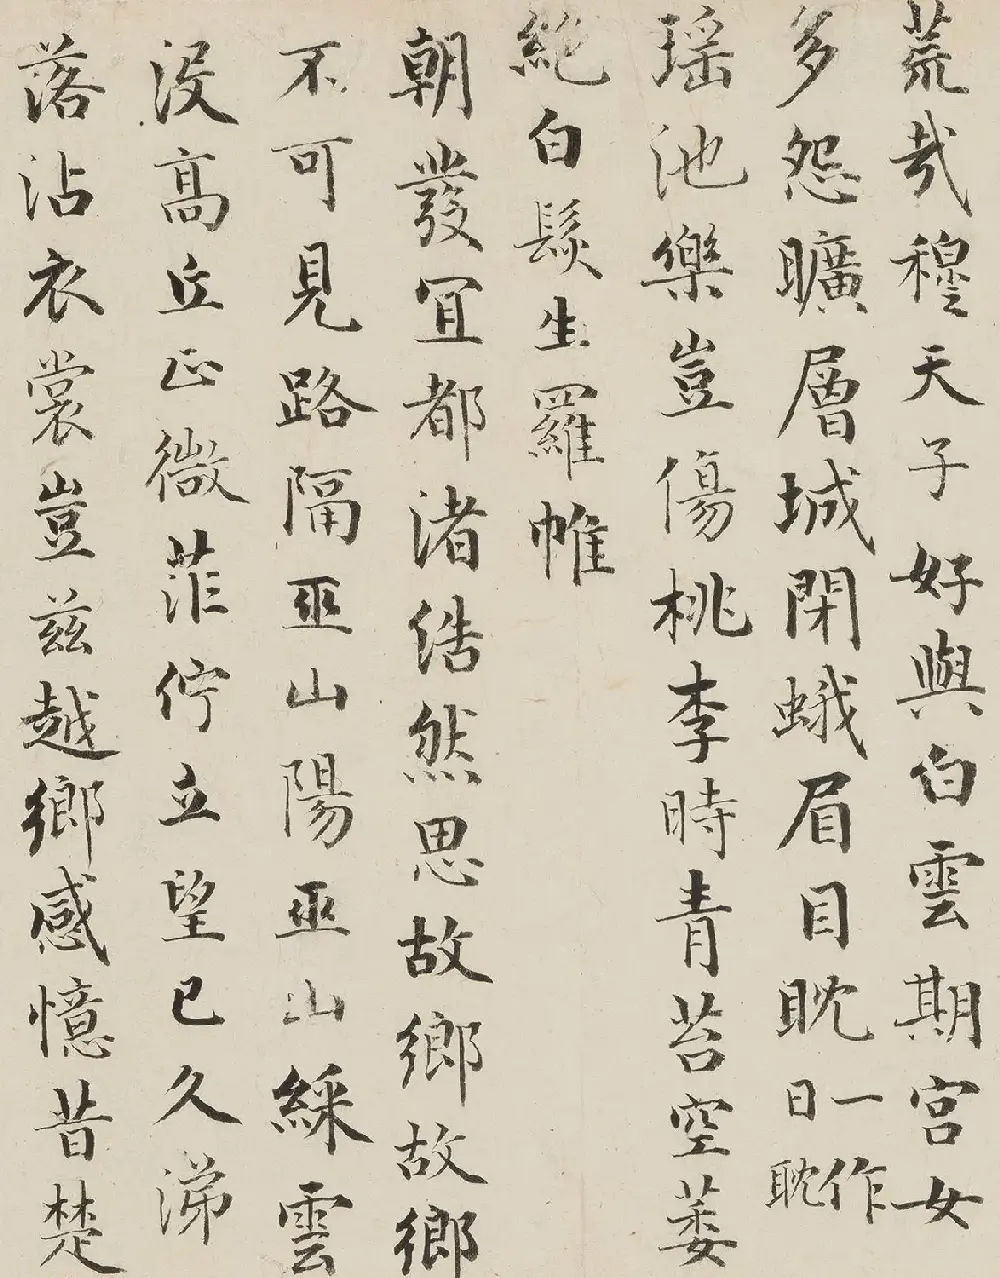 荒哉穆天子好與白雲期宮女
多怨曠層城閉蛾眉目眈一作日眈
瑶池樂豈傷桃李時青苔空萎
絶白髮生羅帷
朝發宜都渚浩然思故鄉故鄉
不可見路隔巫山陽巫山綵雲
没高丘正微茫佇立望已久涕
落沾衣裳豈兹越鄉感憶昔楚